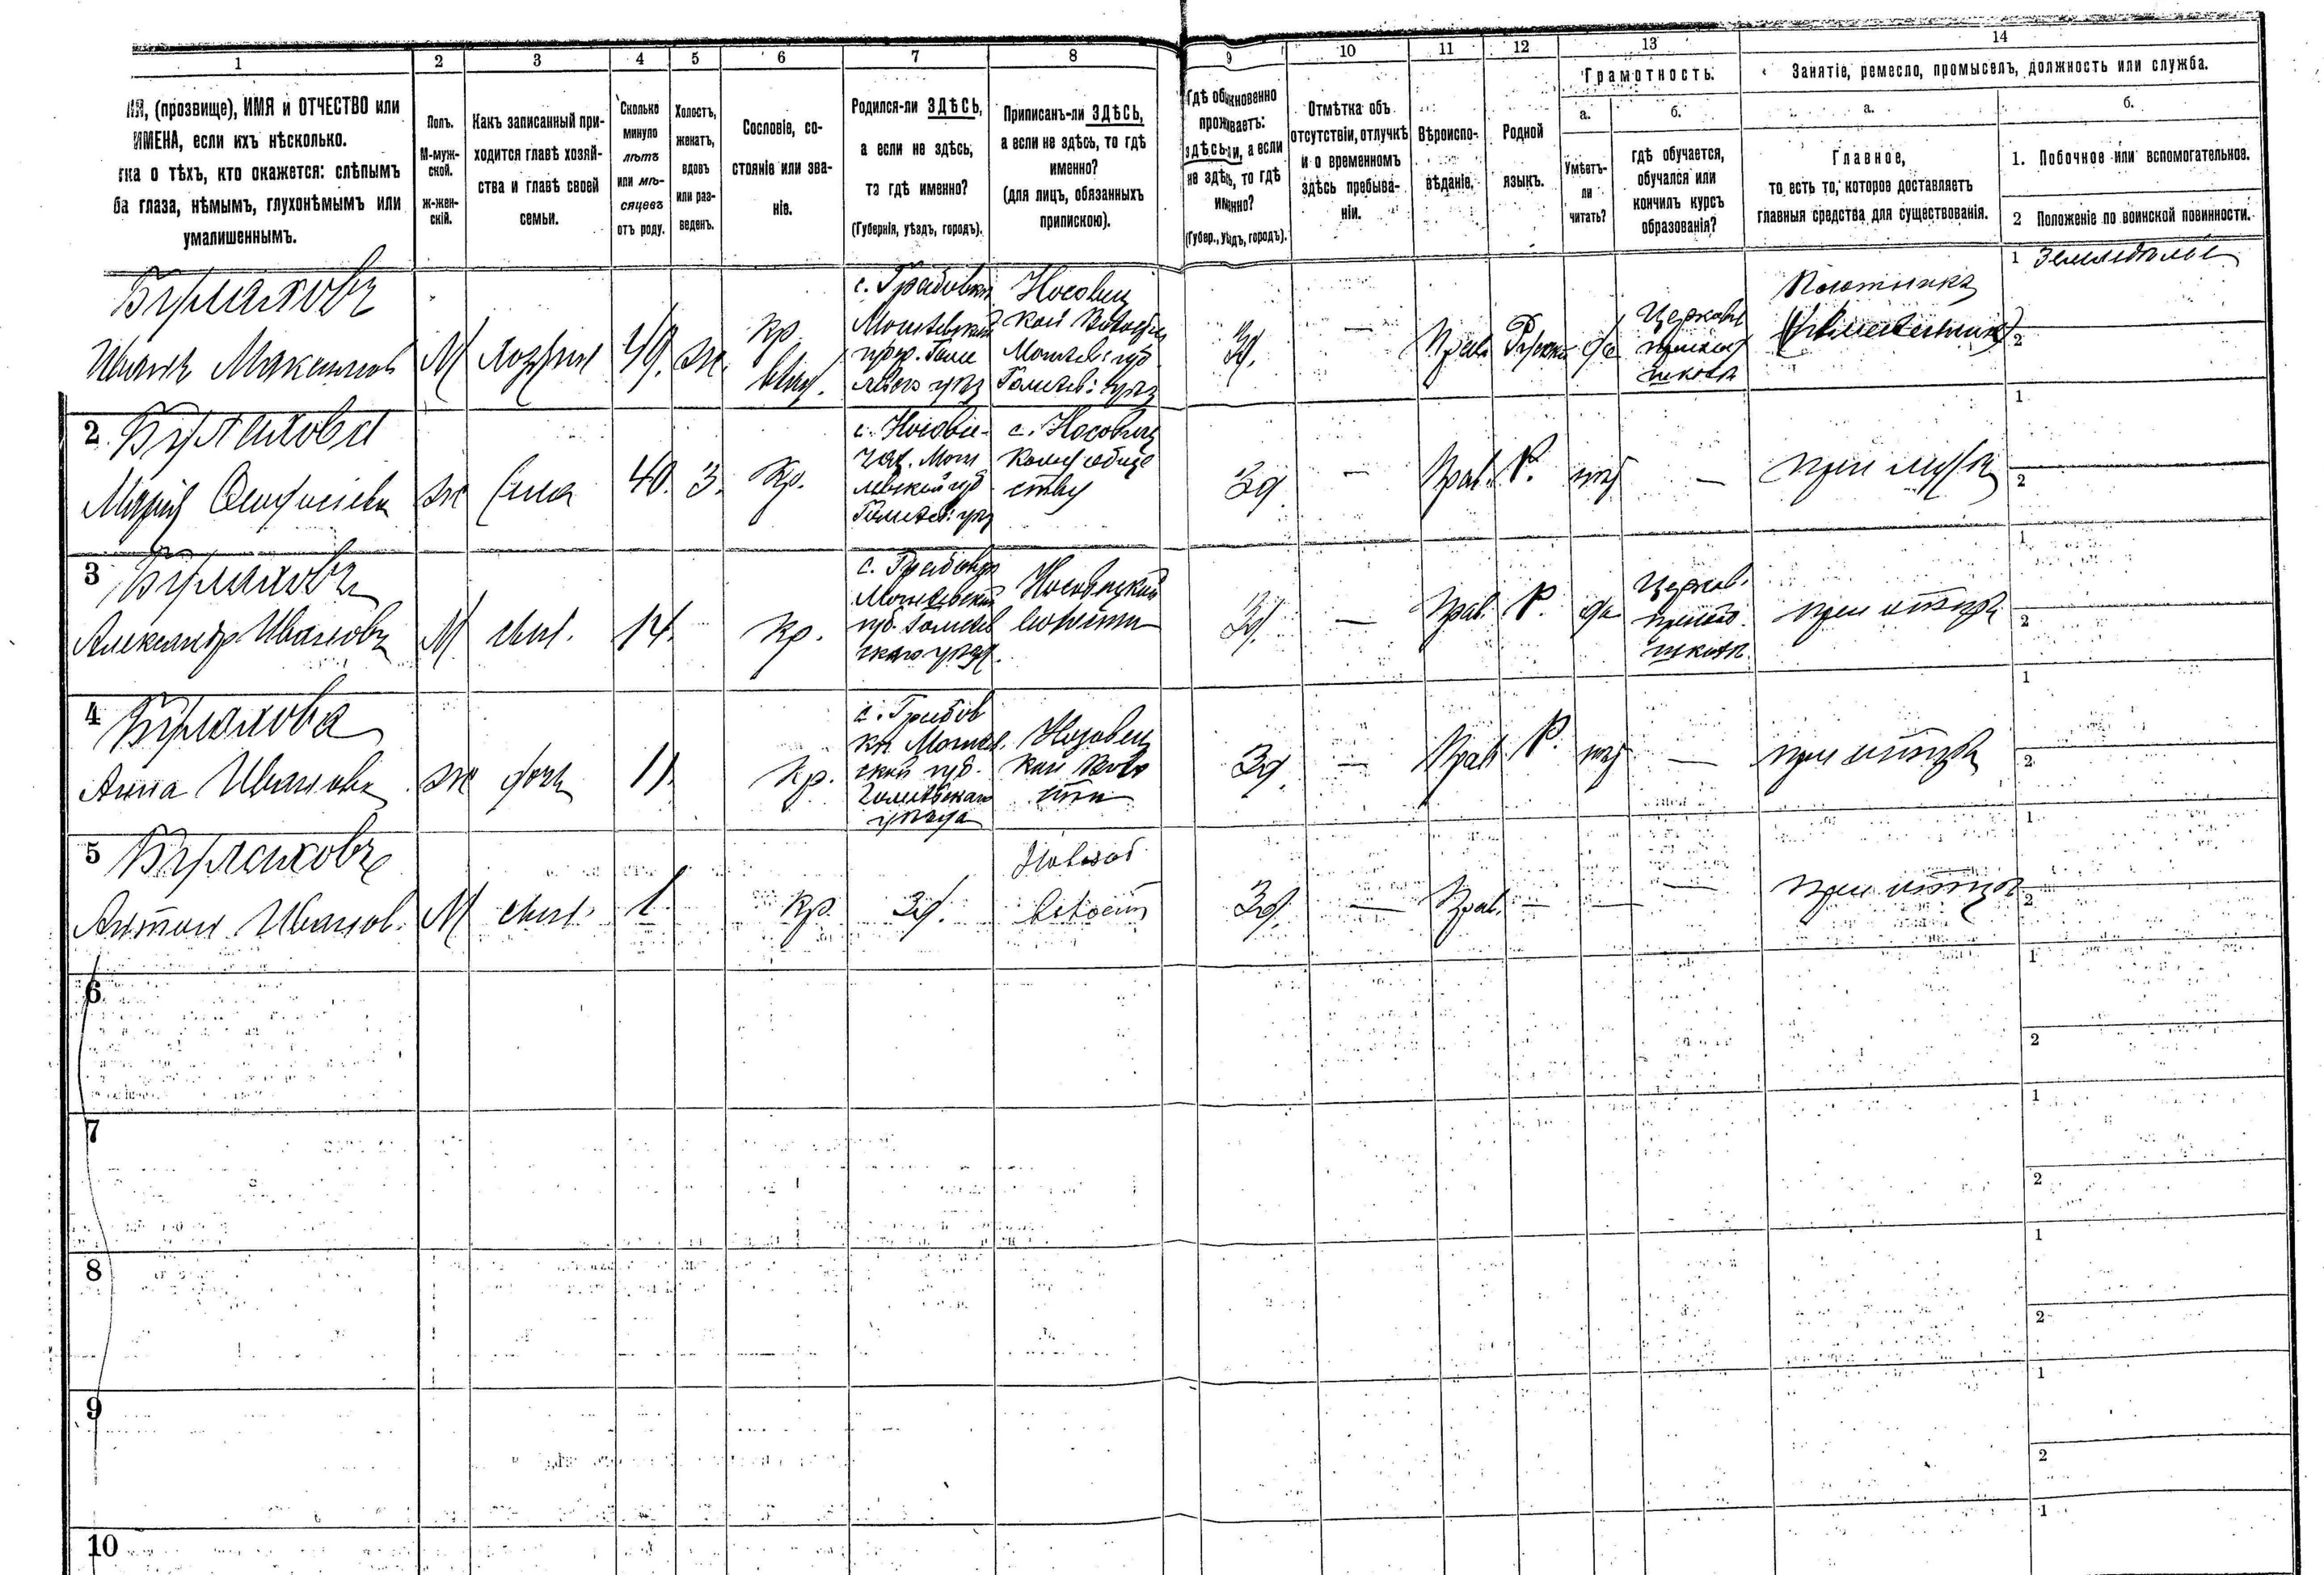 1 2 3 4 5 6 7 8 9 10 11 12 13 14
ИЯ, (прозвище), ИМЯ и ОТЧЕСТВО или
ИМЕНА, если ихъ нѣсколько.
тка о тѣхъ, кто окажется: слѣпымъ
ба глаза, нѣмымъ, глухонѣмымъ или
умалишеннымъ.
Полъ.
М-муж-
ской.
ж-жен-
скій.
Какъ записанный при-
ходится главѣ хозяй-
ства и главѣ своей
семьи.
Сколько
минуло
лѣтъ
или мѣ-
сяцевъ
отъ роду.
Холостъ,
женатъ,
вдовъ
или раз-
веденъ.
Сословіе, со-
стояніе или зва-
ніе.
Родился-ли ЗДѢСЬ,
а если не здѣсь,
то гдѣ именно?
(Губернія, уѣздъ, городъ).
Приписанъ-ли ЗДѢСЬ,
а если не здѣсь, то гдѣ
именно?
(для лицъ, обязанныхъ
припискою).
Гдѣ обыкновенно
проживаетъ:
здѣсь-ли, а если
не здѣсь, то гдѣ
именно?
(Губер., уѣздъ, городъ).
Отмѣтка объ
отсутствіи, отлучкѣ
и о временномъ
здѣсь пребыва-
ніи.
Вѣроиспо-
вѣданіе.
Родной
языкъ.
Грамотность.
а.
Умѣетъ-
ли
читать?
б.
гдѣ обучается,
обучался или
кончилъ курсъ
образованія?
Занятіе, ремесло, промыселъ, должность или служба.
а.
Главное,
то есть то, которое доставляетъ
главныя средства для существованія.
б.
1. Побочное или вспомогательное.
2 Положеніе по воинской повинности.
Бурлаковъ
Иванъ Максимов
М
хозяин
49.
ж.
Кр.
с. Грабовки
Могилевский
Гоме
Носовиц
кой Волости
Могилев: губ
Гомелев: уѣз
Зд.
—
Прав.
Русский
да
Церковн
приход
школа
Плотникъ
1 Земледѣліе
2
2 Бурлакова
Марія
ж
жена
40.
З.
Кр.
с. Носови-
Гомелев: уѣз
с. Носовиц
кому обще
ству
Зд.
—
Прав.
Р.
нѣт
—
при мужѣ
1
2
3 Бурлаковъ
Александр Ивановъ
М
сын.
14.
Кр.
с. Грабовки
Могилевский
губ. Гомелев
скаго уѣзд.
Носовицкий
волости
Зд.
—
Прав.
Р.
да
Церков.
приход.
школѣ.
при отцѣ
1
2
4 Бурлакова
Анна Иванова
ж
дочь
11.
Кр.
с. Грабов
ки Могилев.
ской губ.
Гомельскаго
уѣзда
Носовиц
кой воло
сти
Зд.
—
Прав.
Р.
нѣт
—
при отцѣ
1
2
5 Бурлаковъ
Антон Иванов.
М
сын.
1
Кр.
Зд.
волости
Зд.
—
Прав.
—
—
—
при отцѣ
1
2
6
1
2
7
1
2
8
1
2
9
1
2
10
1